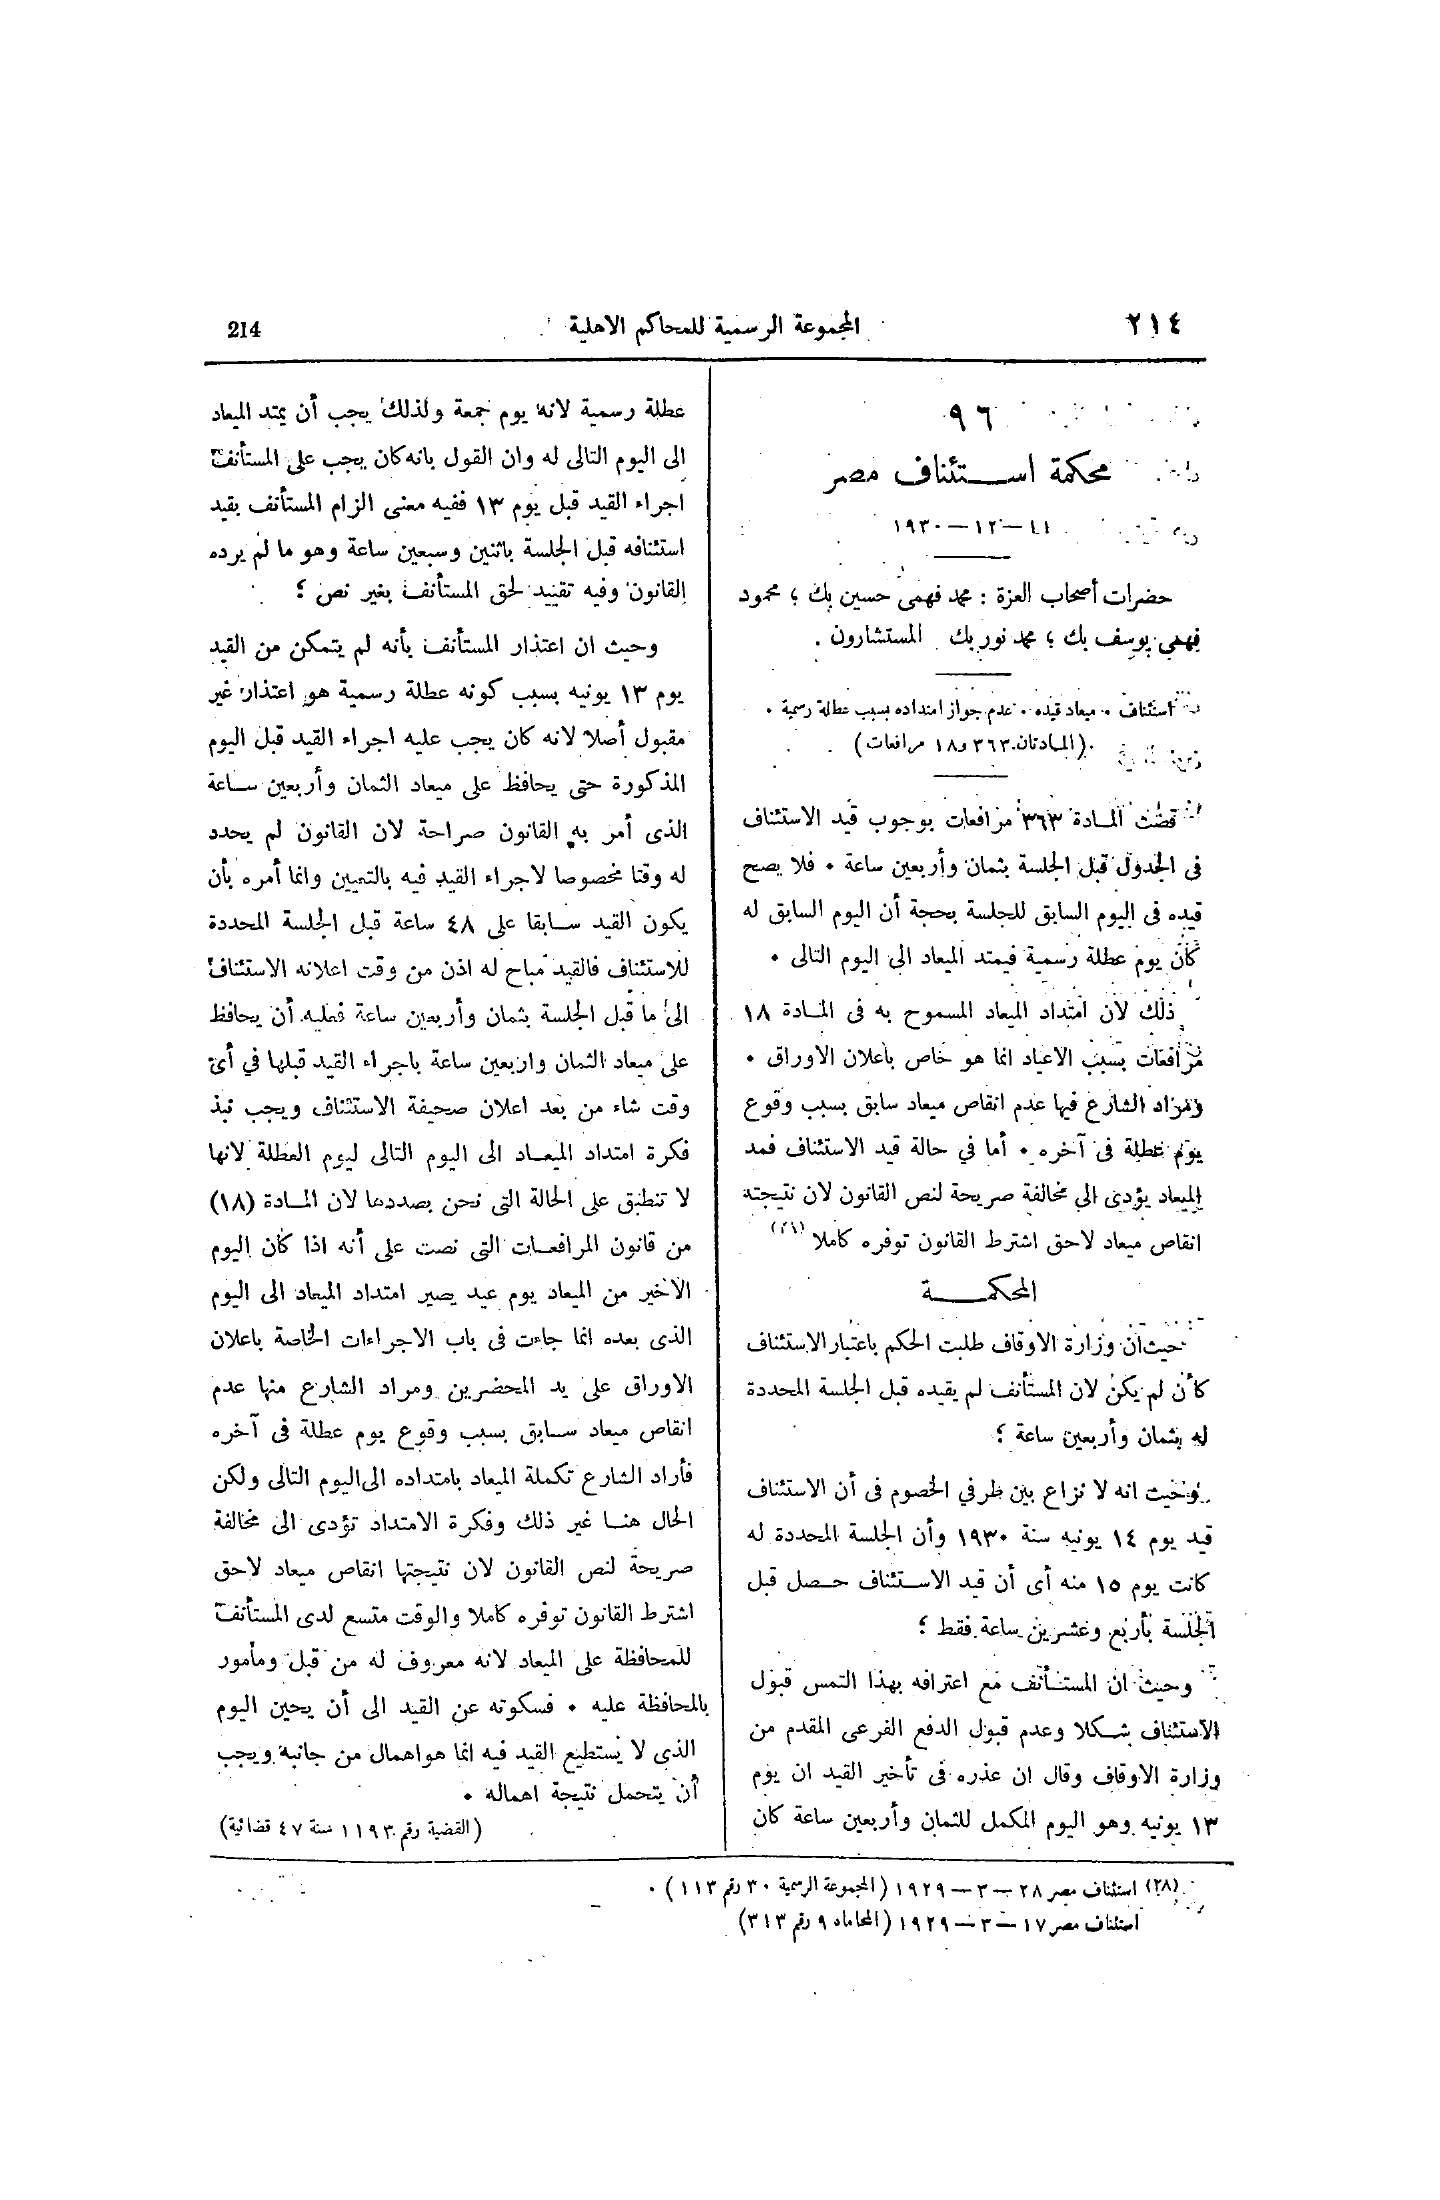 ٢١٤
المجموعة الرسمية للمحاكم الاهلية
214
٩٦
محكمة استئناف مصر
١٢ – ١٩٣٠
حضرات أصحاب العزة : محمد فهمى حسين بك ؛ محمود
فهمي يوسف بك ؛ محمد نور بك . المستشارون .
استئناف . ميعاد قيده . عدم جواز امتداده بسبب عطلة رسمية .
(المادتان ٣٦٣ و١٨ مرافعات)
قضت المادة ٣٦٣ مرافعات بوجوب قيد الاستئناف
فى الجدول قبل الجلسة بثمان وأربعين ساعة . فلا يصح
قيده فى اليوم السابق للجلسة بحجة أن اليوم السابق له
كان يوم عطلة رسمية فيمتد الميعاد الى اليوم التالى .
ذلك لان امتداد الميعاد المسموح به فى المادة ١٨
مرافعات بسبب الاعياد انما هو خاص باعلان الاوراق .
ومراد الشارع فيها عدم انقاص ميعاد سابق بسبب وقوع
يوم عطلة فى آخره . أما في حالة قيد الاستئناف فمد
الميعاد يؤدى الي مخالفة صريحة لنص القانون لان نتيجته
انقاص ميعاد لاحق اشترط القانون توفره كاملا (٢٨)
المحكمة
حيث ان وزارة الاوقاف طلبت الحكم باعتبار الاستئناف
كأن لم يكن لان المستأنف لم يقيده قبل الجلسة المحددة
له بثمان وأربعين ساعة ؛
وحيث انه لا نزاع بين طرفي الخصوم فى أن الاستئناف
قيد يوم ١٤ يونيه سنة ١٩٣٠ وأن الجلسة المحددة له
كانت يوم ١٥ منه أى أن قيد الاستئناف حصل قبل
الجلسة بأربع وعشرين ساعة فقط ؛
وحيث ان المستأنف مع اعترافه بهذا التمس قبول
الاستئناف شكلا وعدم قبول الدفع الفرعى المقدم من
وزارة الاوقاف وقال ان عذره فى تأخير القيد ان يوم
١٣ يونيه وهو اليوم المكمل للثمان وأربعين ساعة كان
عطلة رسمية لانه يوم جمعة ولذلك يجب أن يمتد الميعاد
الى اليوم التالى له وان القول بانه كان يجب على المستأنف
اجراء القيد قبل يوم ١٣ ففيه معنى الزام المستأنف بقيد
استئنافه قبل الجلسة باثنين وسبعين ساعة وهو ما لم يرده
القانون وفيه تقييد لحق المستأنف بغير نص ؛
وحيث ان اعتذار المستأنف بأنه لم يتمكن من القيد
يوم ١٣ يونيه بسبب كونه عطلة رسمية هو اعتذار غير
مقبول أصلا لانه كان يجب عليه اجراء القيد قبل اليوم
المذكورة حتى يحافظ على ميعاد الثمان وأربعين ساعة
الذى أمر به القانون صراحة لان القانون لم يحدد
له وقتا مخصوصا لاجراء القيد فيه بالتعيين وانما أمره بأن
يكون القيد سابقا على ٤٨ ساعة قبل الجلسة المحددة
للاستئناف فالقيد مباح له اذن من وقت اعلانه الاستئناف
الى ما قبل الجلسة بثمان وأربعين ساعة فعليه أن يحافظ
على ميعاد الثمان واربعين ساعة باجراء القيد قبلها في أى
وقت شاء من بعد اعلان صحيفة الاستئناف ويجب نبذ
فكرة امتداد الميعاد الى اليوم التالى ليوم العطلة لانها
لا تنطبق على الحالة التى نحن بصددها لان المادة (١٨)
من قانون المرافعات التى نصت على أنه اذا كان اليوم
الاخير من الميعاد يوم عيد يصير امتداد الميعاد الى اليوم
الذى بعده انما جاءت فى باب الاجراءات الخاصة باعلان
الاوراق على يد المحضرين ومراد الشارع منها عدم
انقاص ميعاد سابق بسبب وقوع يوم عطلة فى آخره
فأراد الشارع تكملة الميعاد بامتداده الى اليوم التالى ولكن
الحال هنا غير ذلك وفكرة الامتداد تؤدى الى مخالفة
صريحة لنص القانون لان نتيجتها انقاص ميعاد لاحق
اشترط القانون توفره كاملا والوقت متسع لدى المستأنف
للمحافظة على الميعاد لانه معروف له من قبل ومأمور
بالمحافظة عليه . فسكوته عن القيد الى أن يحين اليوم
الذى لا يستطيع القيد فيه انما هو اهمال من جانبه ويجب
أن يتحمل نتيجة اهماله .
(القضية رقم ١١٩٣ سنة ٤٧ قضائية)
(٢٨) استئناف مصر ٢٨ – ٣ – ١٩٢٩ (المجموعة الرسمية ٣٠ رقم ١١٣) .
استئناف مصر ١٧ – ٣ – ١٩٢٩ (المحاماه ٩ رقم ٣١٣)